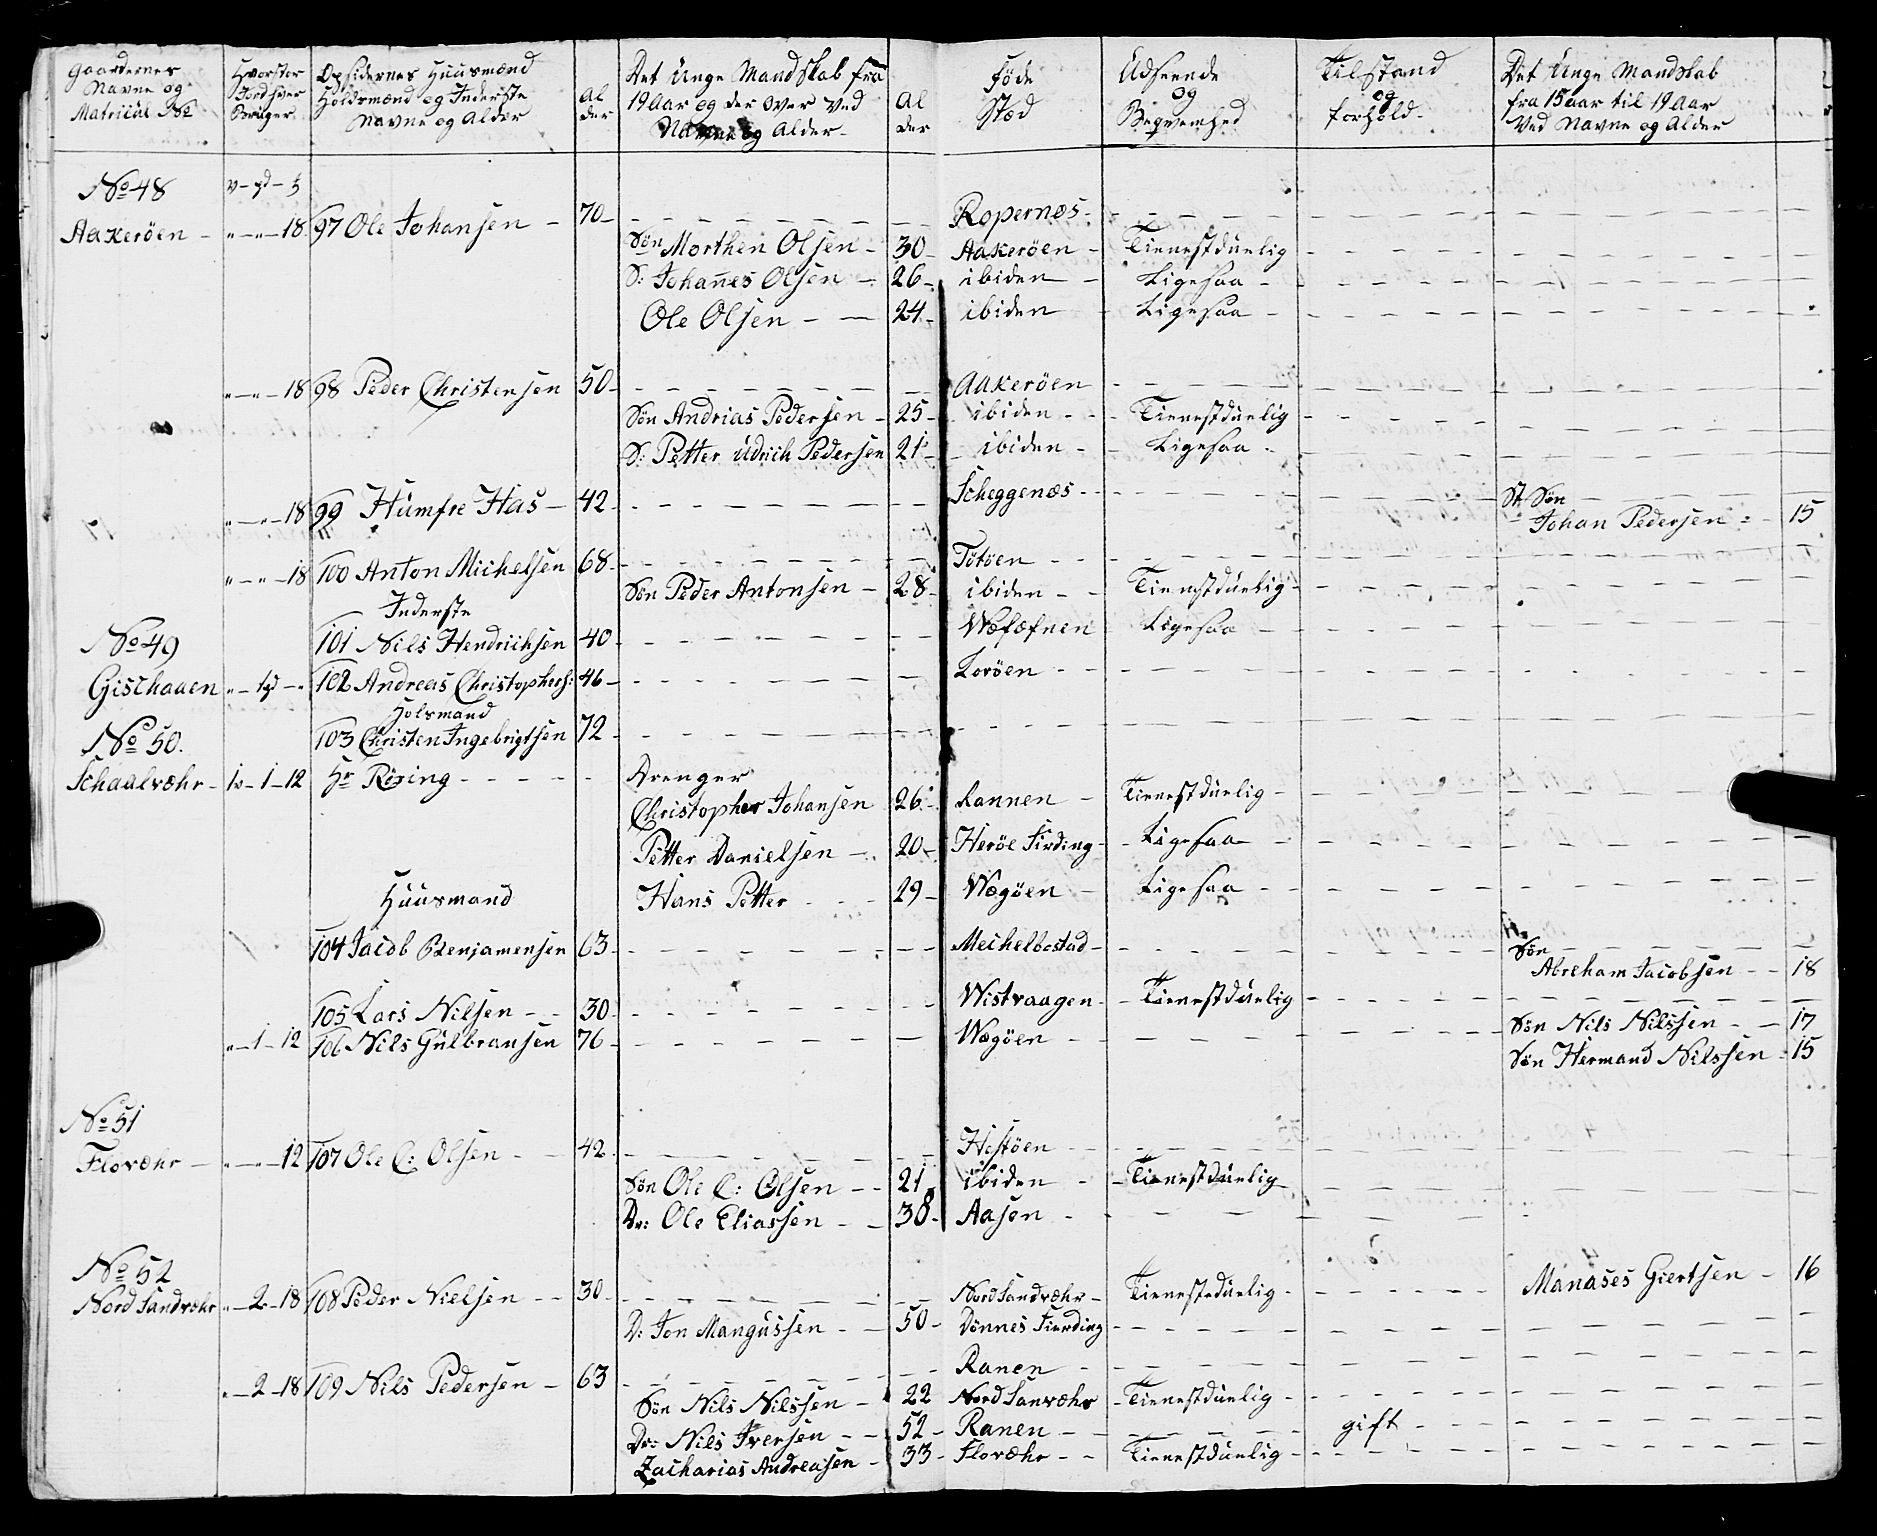 Gaardernes Navne og Matricul No
Hvorster Jordhver Bruger
Opsidernes Huusmænd Holdsmænd og Inderste Navne og Alder
Al der
Det Unge Mandskab fra 19 Aar og der over Ved Navne og Alder
Al der
Føde Stæd
Udseende og Beqvemhed
Tilstand og forhold
Det Unge Mandskab fra 15 aar til 19 Aar Ved Navne og Alder
No 48
Aakerøen - " - " - 18 97 Ole Johansen - 70 - Ropernæs
Søn Morthen Olsen - 30 - Aakerøen - Tienestdünlig
S: Johannes Olsen - 26 - ibiden - Ligesaa
Ole Olsen - 24 - ibiden - Ligesaa
" - " - 18 98 Peder Christensen 50 - Aakerøen
Søn Andrias Pedersen - 25 - ibiden - Tienestdünlig
S: Petter Udrich Pedersen 21 - ibiden - Ligesaa
" - " - 18 99 Humfre Has - 42 - Scheggenæs - St Søn
Johan Pedersen - 15
" - " - 18 100 Anton Michelsen 68 - Totøen
Søn Peder Antonsen - 28 - ibiden - Tienestdünlig
Inderste
No 49 101 Nils Hendrichsen 40 - Wefæfnen Ligesaa
Gischaaen 102 Andreas Christophers: 46 - Lorøen
Holsmand
No 50. 103 Christen Ingebrigtsen 72
Schaalvæhr - 1v - 1 - 12 Hr Røring - Drenger
Christopher Johansen 26 - Rannen - Tienestdünlig
Petter Danielsen - 20 - Herøe Firding - Ligesaa
Huusmand Hans Petter - 29 - Wægøen - Ligesaa
104 Jacob Benjamensen 63 - Meichelbostad - Søn
Abreham Jacobsen - 18
105 Lars Nilsen - 30 - Wistvaagen - Tienestdünlig
" - 1 - 12 106 Nils Gulbransen 76 - Wægøen - Søn Nils Nilssen - 17
Søn Hermand Nilssen - 15
No 51
Flovæhr - " - " - 12 107 Ole C: Olsen - 42 - Hestøen
Søn Ole C: Olsen - 21 - ibiden - Tienestdünlig
Dr: Ole Eliassen - 38 - Aasen
No 52
Nord Sandvæhr " - 2 - 18 108 Peder Nielsen - 30 - Nord Sandvæhr - Tienestedünlig - Manases Giertsen - 16
D: Jon Mangussen - 50 - Dønnes Fierding
" - 2 - 18 109 Nils Pedersen - 63 - Ranen
Søn Nils Nilssen - 22 Nord Sanvæhr - Tienestdünlig
Dr: Nils Iversen - 52 - Ranen - gift
Zacharias Andreasen - 33 - Flovæhr - Tienestdünlig